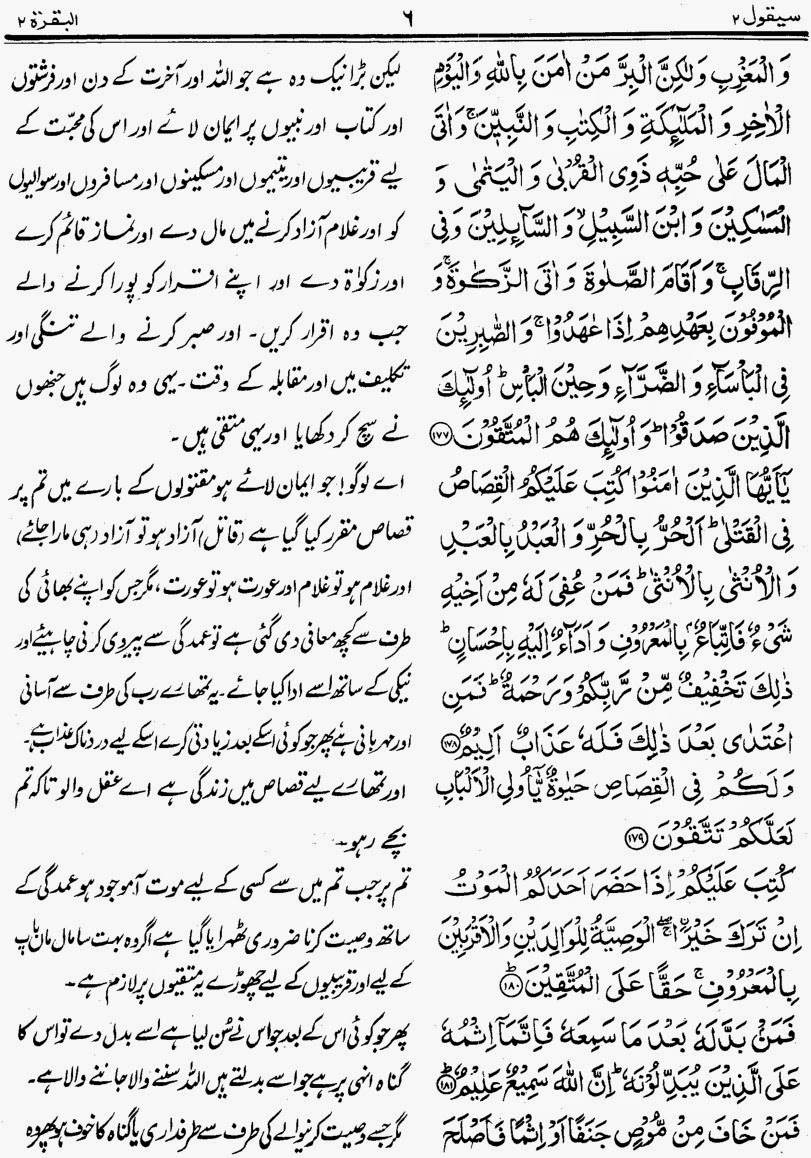 سیقول ۲
٦
البقرة ۲
وَ الْمَغْرِبِ وَلٰكِنَّ الْبِرَّ مَنْ اٰمَنَ بِاللّٰهِ وَالْيَوْمِ
الْاٰخِرِ وَ الْمَلٰٓئِكَةِ وَ الْكِتٰبِ وَ النَّبِيّٖنَ ۚ وَ اٰتَى
الْمَالَ عَلٰى حُبِّهٖ ذَوِى الْقُرْبٰى وَ الْيَتٰمٰى وَ
الْمَسٰكِيْنَ وَ ابْنَ السَّبِيْلِ ۙ وَ السَّآئِلِيْنَ وَفِى
الرِّقَابِ ۚ وَ اَقَامَ الصَّلٰوةَ وَ اٰتَى الزَّكٰوةَ ۚ وَ
الْمُوْفُوْنَ بِعَهْدِهِمْ اِذَا عٰهَدُوْا ۚ وَ الصّٰبِرِيْنَ
فِى الْبَاْسَآءِ وَ الضَّرَّآءِ وَحِيْنَ الْبَاْسِ ؕ اُولٰٓئِكَ
الَّذِيْنَ صَدَقُوْا ؕ وَ اُولٰٓئِكَ هُمُ الْمُتَّقُوْنَ ۝۱۷۷
يٰٓاَيُّهَا الَّذِيْنَ اٰمَنُوْا كُتِبَ عَلَيْكُمُ الْقِصَاصُ
فِى الْقَتْلٰى ؕ اَلْحُرُّ بِالْحُرِّ وَ الْعَبْدُ بِالْعَبْدِ
وَ الْاُنْثٰى بِالْاُنْثٰى ؕ فَمَنْ عُفِىَ لَهٗ مِنْ اَخِيْهِ
شَىْءٌ فَاتِّبَاعٌۢ بِالْمَعْرُوْفِ وَ اَدَآءٌ اِلَيْهِ بِاِحْسَانٍ ؕ
ذٰلِكَ تَخْفِيْفٌ مِّنْ رَّبِّكُمْ وَ رَحْمَةٌ ؕ فَمَنِ
اعْتَدٰى بَعْدَ ذٰلِكَ فَلَهٗ عَذَابٌ اَلِيْمٌ ۝۱۷۸
وَ لَكُمْ فِى الْقِصَاصِ حَيٰوةٌ يّٰٓاُولِى الْاَلْبَابِ
لَعَلَّكُمْ تَتَّقُوْنَ ۝۱۷۹
كُتِبَ عَلَيْكُمْ اِذَا حَضَرَ اَحَدَكُمُ الْمَوْتُ
اِنْ تَرَكَ خَيْرَا ۖۚ اۨلْوَصِيَّةُ لِلْوَالِدَيْنِ وَالْاَقْرَبِيْنَ
بِالْمَعْرُوْفِ ۚ حَقًّا عَلَى الْمُتَّقِيْنَ ۝۱۸۰ؕ
فَمَنْۢ بَدَّلَهٗ بَعْدَ مَا سَمِعَهٗ فَاِنَّمَآ اِثْمُهٗ
عَلَى الَّذِيْنَ يُبَدِّلُوْنَهٗ ؕ اِنَّ اللّٰهَ سَمِيْعٌ عَلِيْمٌ ۝۱۸۱ؕ
فَمَنْ خَافَ مِنْ مُّوْصٍ جَنَفًا اَوْ اِثْمًا فَاَصْلَحَ
لیکن بڑا نیک وہ ہے جو اللہ اور آخرت کے دن اور فرشتوں
اور کتاب اور نبیوں پر ایمان لائے اور اس کی محبّت کے
لیے قریبیوں اور یتیموں اور مسکینوں اور مسافروں اور سوالیوں
کو اور غلام آزاد کرنے میں مال دے اور نماز قائم کرے
اور زکوٰة دے اور اپنے اقرار کو پورا کرنے والے
جب وہ اقرار کریں۔ اور صبر کرنے والے تنگی اور
تکلیف میں اور مقابلہ کے وقت۔ یہی وہ لوگ ہیں جنھوں
نے سچ کر دکھایا اور یہی متقی ہیں۔
اے لوگو! جو ایمان لائے ہو مقتولوں کے بارے میں تم پر
قصاص مقرر کیا گیا ہے (قاتل) آزاد ہو تو آزاد (ہی مارا جائے)
اور غلام ہو تو غلام اور عورت ہو تو عورت، مگر جس کو اپنے بھائی کی
طرف سے کچھ معافی دی گئی ہے تو عمدگی سے پیروی کرنی چاہیئے اور
نیکی کے ساتھ اسے ادا کیا جائے۔ یہ تمھارے رب کی طرف سے آسانی
اور مہربانی ہے پھر جو کوئی اسکے بعد زیادتی کرے اسکے لیے دردناک عذاب ہے۔
اور تمھارے لیے قصاص میں زندگی ہے اے عقل والو تاکہ تم
بچے رہو۔
تم پر جب تم میں سے کسی کے لیے موت آموجود ہو عمدگی کے
ساتھ وصیت کرنا ضروری ٹھہرایا گیا ہے اگر وہ بہت سا مال ماں باپ
کے لیے اور قریبیوں کے لیے چھوڑے یہ متقیوں پر لازم ہے۔
پھر جو کوئی اس کے بعد جو اس نے سُن لیا ہے اسے بدل دے تو اس کا
گناہ انہی پر ہے جو اسے بدلتے ہیں اللہ سننے والا جاننے والا ہے۔
مگر جسے وصیت کرنیوالے کی طرف سے طرفداری یا گناہ کا خوف ہو پھر وہ